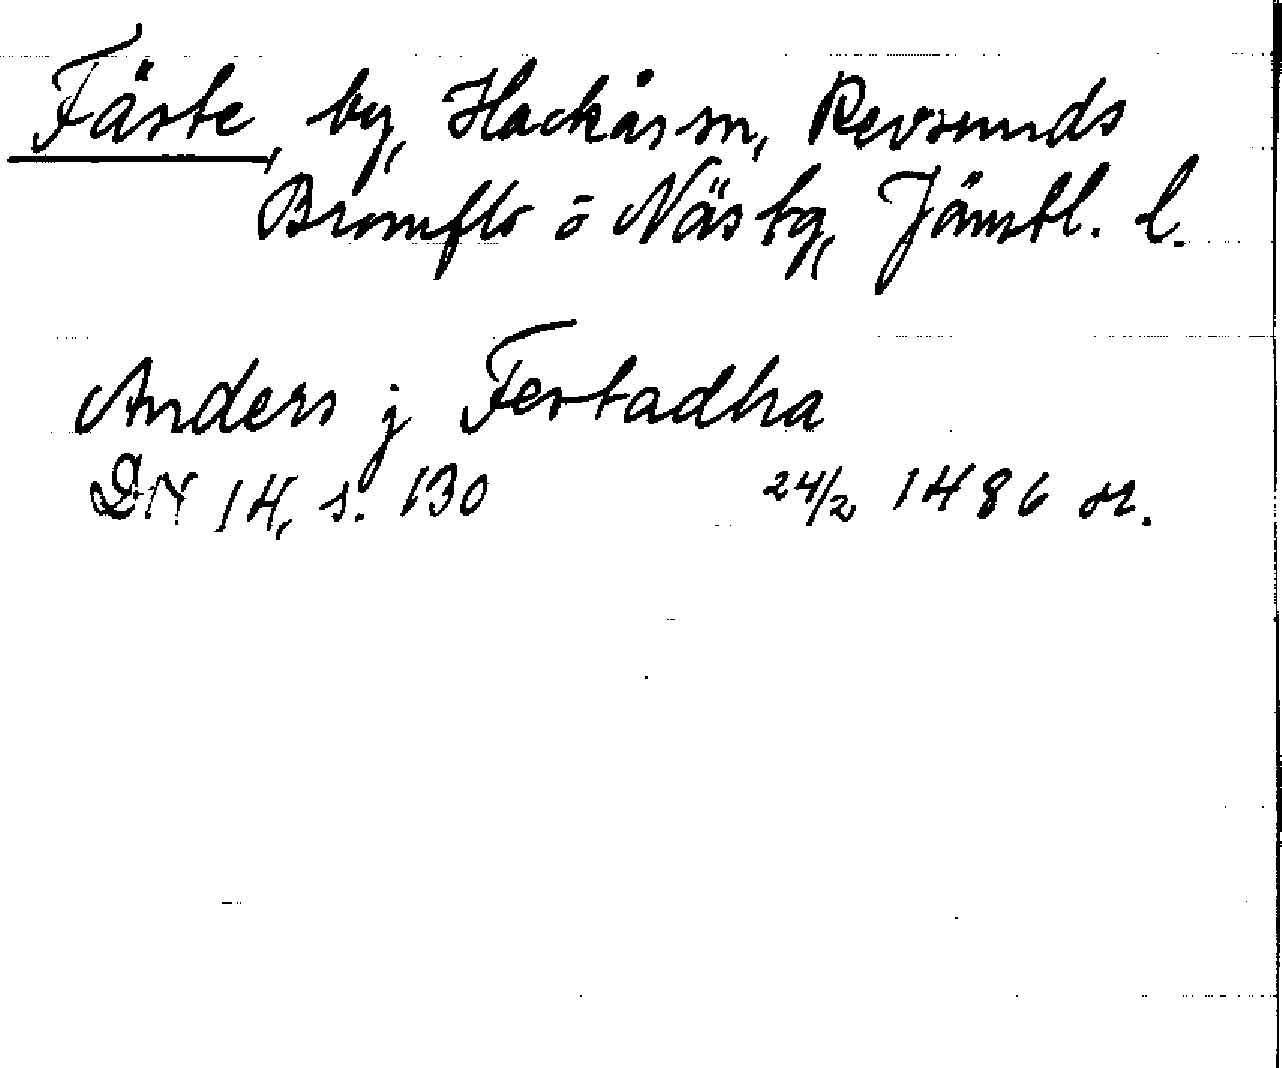 Fäste, by, Hackås sn, Revsunds
Brunflo o Näs tg, Jämtl. l.
Anders j Festadha
DN 14, s. 130 24/2 1486 or.